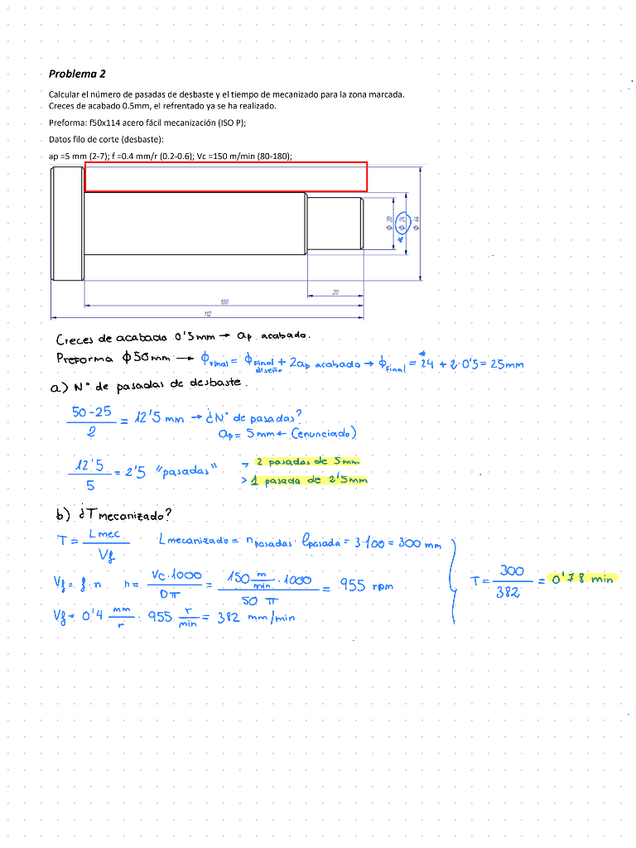 Problema 2
Calcular el número de pasadas de desbaste y el tiempo de mecanizado para la zona marcada.
Creces de acabado 0.5mm, el refrentado ya se ha realizado.
Preforma: f50x114 acero fácil mecanización (ISO P);
Datos filo de corte (desbaste):
ap =5 mm (2-7); f =0.4 mm/r (0.2-0.6); Vc =150 m/min (80-180);
Φ 20
Φ 24
*
Φ 44
20
100
112
Creces de acabado 0'5mm → ap acabado.
Preforma Φ50mm → Φfinal = Φfinal diseño + 2ap acabado → Φfinal = *24 + 2·0'5 = 25mm
a) Nº de pasadas de desbaste.
50-25 / 2 = 12'5 mm → ¿Nº de pasadas?
ap = 5mm ← (enunciado)
12'5 / 5 = 2'5 "pasadas"
→ 2 pasadas de 5mm
> 1 pasada de 2'5mm
b) ¿Tmecanizado?
T = Lmec. / Vf
Lmecanizado = npasadas · lpasada = 3·100 = 300 mm
Vf = f·n
n = Vc·1000 / Dπ = 150 m/min · 1000 / 50 π = 955 rpm
Vf = 0'4 mm/r · 955 r/min = 382 mm/min
T = 300 / 382 = 0'78 min